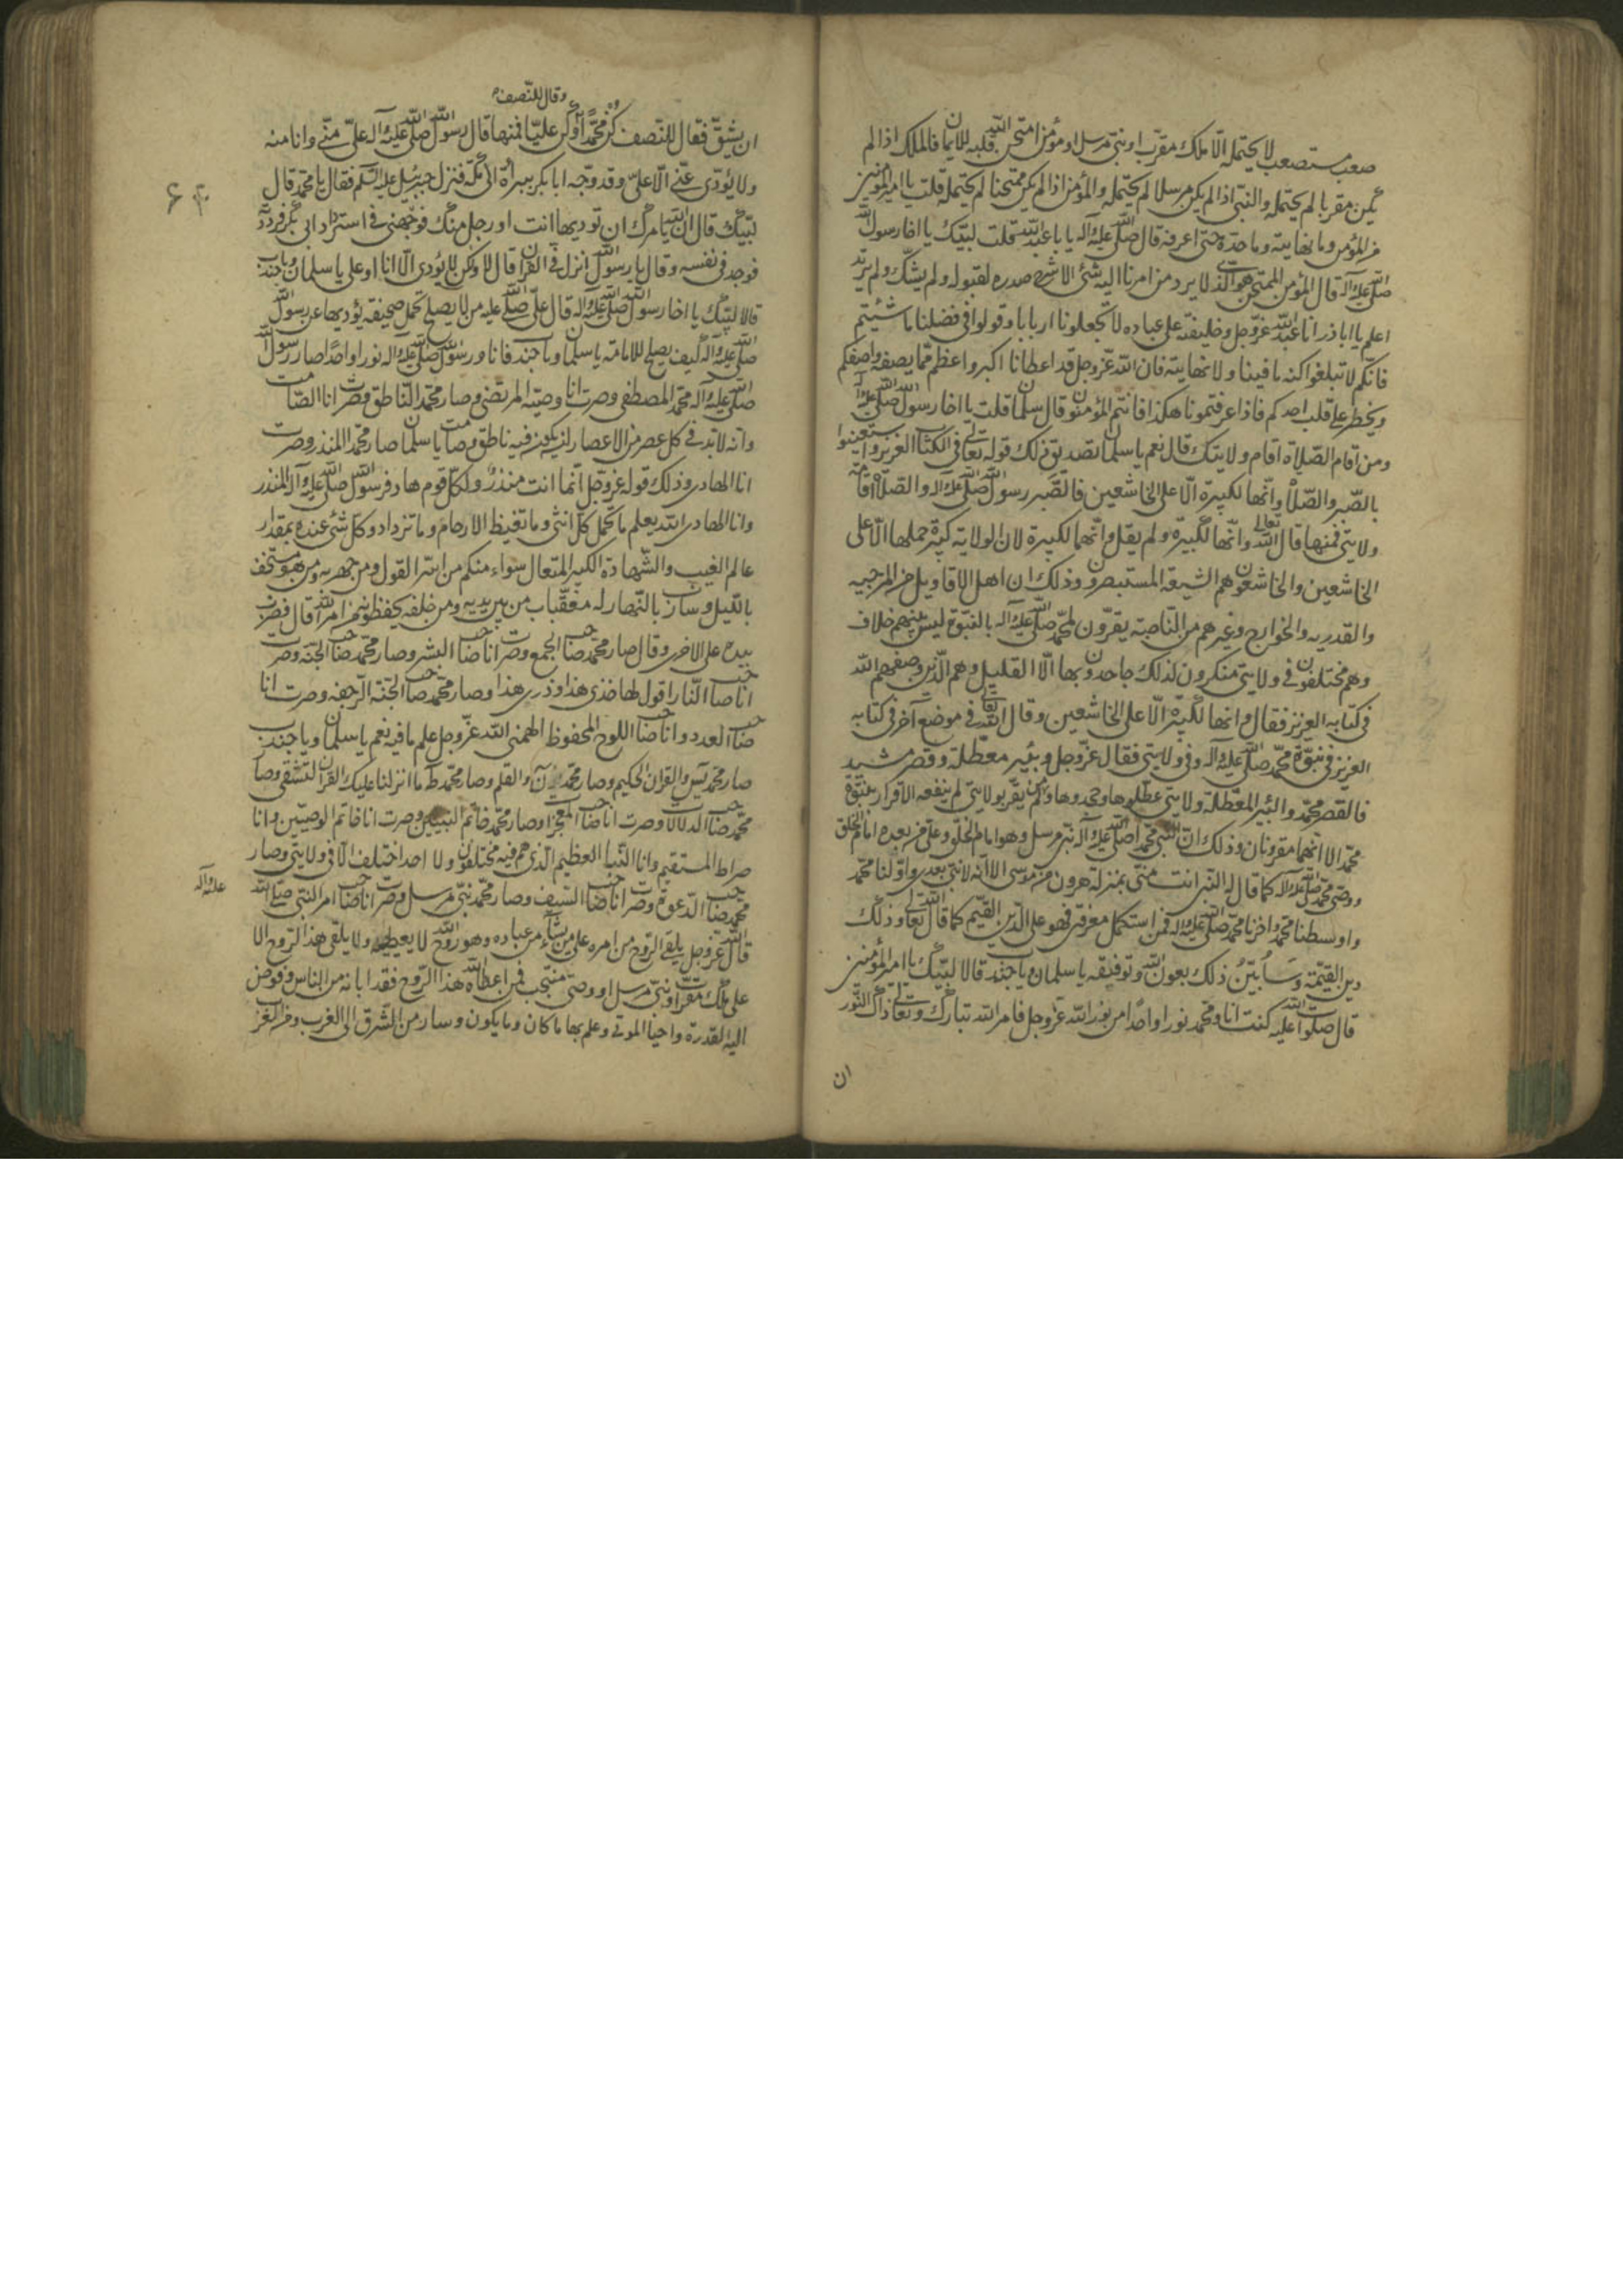 صعب مستصعب لا يحتمله الّا ملك مقرّب او نبيّ مرسل او مؤمن امتحن الله قلبه للايمان فالملك اذا لم
يكن مقربا لم يحتمله والنبّي اذا لم يكن مرسلا لم يحتمله والمؤمن اذا لم يكن ممتحنا لم يحتمله قلت يا امير المؤمنين
من المؤمن وما نهايته وما حدّه حتى اعرفه قال صلّى الله عليه وآله يا با عبد الله قلت لبّيك يا اخا رسول الله
صلّى الله عليه وآله قال المؤمن الممتحن هو الّذي لا يرد من امرنا اليه شئ الا شرح صدره لقبوله ولم يشكّ ولم يرتد
اعلم يا اباذر انا عبد الله عزّ وجل وخليفته على عباده لا تجعلونا اربابا وقولوا في فضلنا ما شئتم
فانكم لا تبلغوا كنه ما فينا ولا نهايته فان الله عزّ وجل قد اعطانا اكبر واعظم ممّا يصفه واصفكم
ويخطر على قلب احدكم فاذا عرفتمونا هكذا فانتم المؤمنون قال سلمان قلت يا اخا رسول الله صلّى الله عليه وآله
ومن اقام الصّلاة اقام ولايتك قال نعم يا سلمان تصديق ذلك قوله تعالى في الكتاب العزيز واستعينوا
بالصّبر والصّلاة وانّها لكبيرة الّا على الخاشعين فالصّبر رسول الله صلّى الله عليه وآله والصّلاة اقامة
ولايتي فمنها قال الله تعالى وانّها لكبيرة ولم يقل وانّهما لكبيرة لان الولاية كبيرة حملها الّا على
الخاشعين والخاشعون هم الشيعة المستبصرون وذلك ان اهل الاقاويل من المرجية
والقدرية والخوارج وغيرهم من الناصبة يقرّون لمحمّد صلّى الله عليه وآله بالنبوّة ليس بينهم خلاف
وهم مختلفون في ولايتي منكرون لذلك جاحدون بها الّا القليل وهم الّذين وصفهم الله
في كتابه العزيز فقال وانها لكبيرة الّا على الخاشعين وقال الله تعالى في موضع آخر في كتابه
العزيز في نبوّة محمّد صلّى الله عليه وآله وفي ولايتي فقال عزّ وجل وبئر معطّلة وقصر مشيد
فالقصر محمّد والبئر المعطّلة ولايتي عطّلوها وجحدوها ومن لم يقرّ بولايتي لم ينفعه الاقرار بنبوّة
محمّد الا انّهما مقرونان وذلك انّ النبي محمّدا صلّى الله عليه وآله نبيّ مرسل وهو امام الخلق وعليّ من بعده امام الخلق
ووصي محمّد صلّى الله عليه وآله كما قال له النبي انت منّي بمنزلة هرون من موسى الا انّه لا نبيّ بعدي واوّلنا محمّد
واوسطنا محمّد واخرنا محمّد صلّى الله عليه وآله فمن استكمل معرفتي فهو على الدّين القيّم كما قال الله تعالى وذلك
دين القيّمة وسابيّن ذلك بعون الله وتوفيقه يا سلمان ويا جندب قالا لبّيك يا امير المؤمنين
قال صلوات الله عليه كنت انا ومحمّد نورا واحدا من نور الله عزّ وجل فامر الله تبارك وتعالى ذاك النّور
ان
وقال للنّصف
ان يشقّ فقال للنّصف كن محمّدًا وكن عليّا فمنها قال رسول الله صلّى الله عليه وآله عليّ منّي وانا منه
ولا يؤدّي عنّي الّا عليّ وقد وجّه ابا بكر ببراة الى مكّة فنزل جبرئيل عليه السّلم فقال يا محمّد قال
لبّيك قال انّ الله يامرك ان توديها انت او رجل منك فوجّهني في استرداد ابي بكر فرددته
فوجد في نفسه وقال يا رسول الله انزل في القرآن قال لا ولكن لا يؤدي الّا انا او علي يا سلمان ويا جندب
قالا لبّيك يا اخا رسول الله صلّى الله عليه وآله قال علي صلّى الله عليه من لا يصلح لحمل صحيفة يؤديها عن رسول الله
صلّى الله عليه وآله كيف يصلح للامامة يا سلمان ويا جندب فانا ورسول الله صلّى الله عليه وآله نورا واحدًا صار رسول الله
صلّى الله عليه وآله محمّد المصطفى وصرت انا وصيّه المرتضى وصار محمّد النّاطق وصرت انا الصّامت
وانّه لا بدّ في كل عصر من الاعصار ان يكون فيه ناطق وصامت يا سلمان صار محمّد المنذر وصرت
انا الهادي وذلك قوله عزّ وجل انّما انت منذر ولكلّ قوم هاد فرسول الله صلّى الله عليه وآله المنذر
وانا الهادي الله يعلم ما تحمل كلّ انثى وما تغيظ الارحام وما تزداد وكلّ شئ عنده بمقدار
عالم الغيب والشّهادة الكبير المتعال سواء منكم من اسرّ القول ومن جهر به ومن هو مستخف
بالّليل وسارب بالنّهار له معقّبات من بين يديه ومن خلفه يحفظونه من امر الله قال فضرب
بيده على الاخرى وقال صار محمّد صاحب الجمع وصرت انا صاحب النشر وصار محمّد صاحب الجنّة وصرت
انا صاحب النّار اقول لها خذي هذا وذري هذا وصار محمّد صاحب الرّجفة وصرت انا
صاحب العدد وانا صاحب اللوح المحفوظ الهمني الله عزّ وجل علم ما فيه نعم يا سلمان ويا جندب
صار محمّد يس والقران الحكيم وصار محمّد ن والقلم وصار محمّد طه ما انزلنا عليك القرآن لتشقى وصار
محمّد صاحب الدلالات وصرت انا صاحب المعجزات وصار محمّد خاتم النبيّين وصرت انا خاتم الوصيّين وانا
صراط المستقيم وانا النّبأ العظيم الّذي هم فيه مختلفون ولا احد اختلف الّا في ولايتي وصار
محمّد صاحب الدّعوة وصرت انا صاحب السّيف وصار محمّد نبيّ مرسل وصرت انا صاحب امر النّبي صلّى الله
عليه وآله
قال الله عزّ وجل يلقي الرّوح من امره على من يشآء من عباده وهو روح الله لا يعطيه ولا يلقي هذا الرّوح الا
على ملك مقرّب او نبيّ مرسل او وصيّ منتجب فمن اعطاه الله هذا الرّوح فقد ابانه من الناس وفوض
اليه القدرة واحيا الموتى وعلم بها ما كان وما يكون وسار من المشرق الى المغرب ومن المغرب